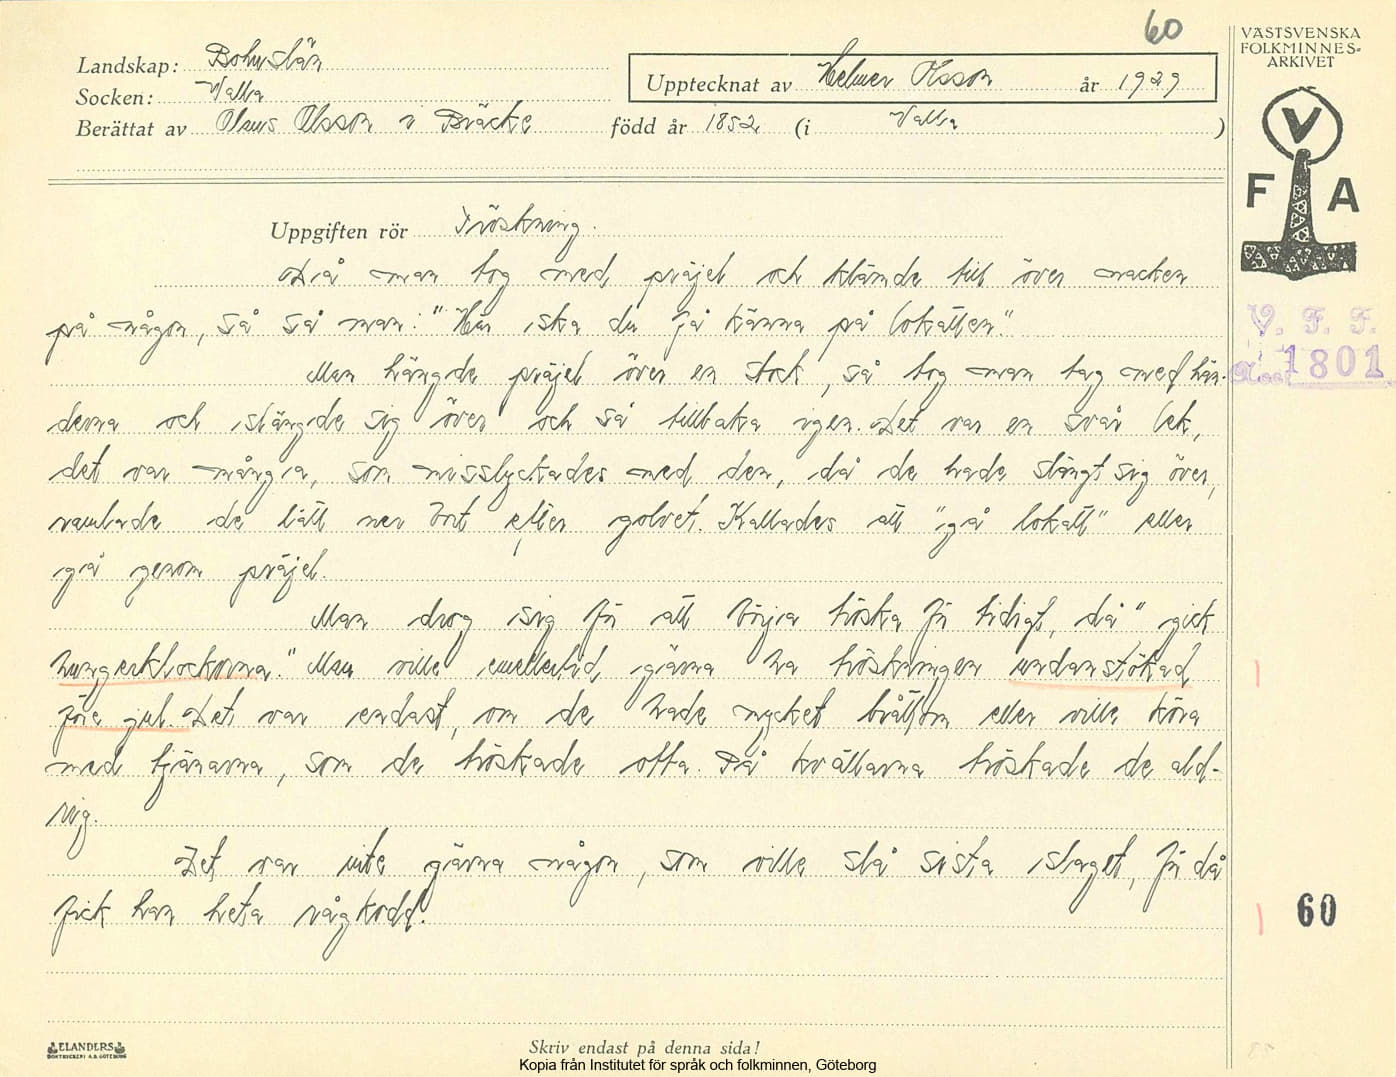 60
VÄSTSVENSKA
FOLKMINNES-
ARKIVET
Landskap: Bohuslän
Upptecknat av Helmer Olsson år 1929
Socken: Valla
Berättat av Olaus Olsson i Bräcke född år 1852 (i Valla )
V
F A
Uppgiften rör Tröskning.
Då man tog med präjel och klämde till över nacken
på någon, så sa man: "Här ska du få känna på lokatten."
V. F. F.
1801
Man hängde präjel över en stock, så tog man tag med hän-
derna och slängde sig över och så tillbaka igen. Det var en svår lek,
det var många, som misslyckades med den, då de hade slängt sig över,
ramlade de lätt ner bort efter golvet. Kallades att "gå lokatt" eller
gå genom präjel.
Man drog sig för att börja tröska för tidigt, då "gick
hungerklockorna." Man ville emellertid gärna ha tröskningen undanstökad
före jul. Det var endast, om de hade mycket bråttom eller ville köra
med tjänarna, som de tröskade ofta. På kvällarna tröskade de ald-
rig.
Det var inte gärna någon, som ville slå sista slaget, för då
fick han heta rågkodd.
60
ELANDERS
BOKTRYCKERI A.B. GÖTEBORG
Skriv endast på denna sida!
Kopia från Institutet för språk och folkminnen, Göteborg